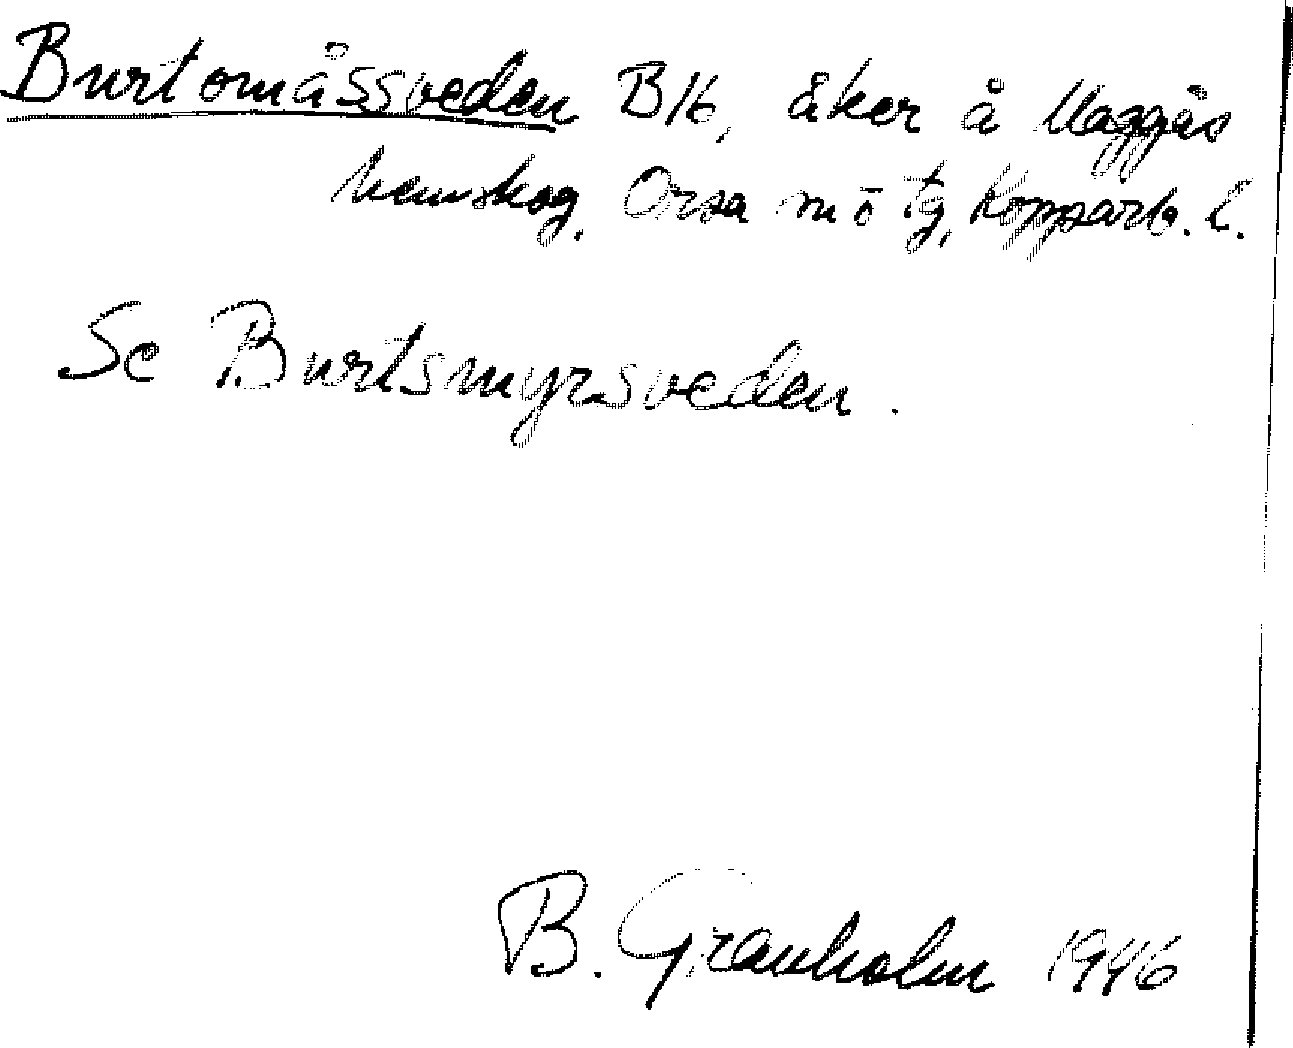 Burtomåssveden B16, åker å Maggås
hemskog, Orsa m ö tg, Kopparb. l.
Se Burtsmyrsveden.
B. Granholm 1946